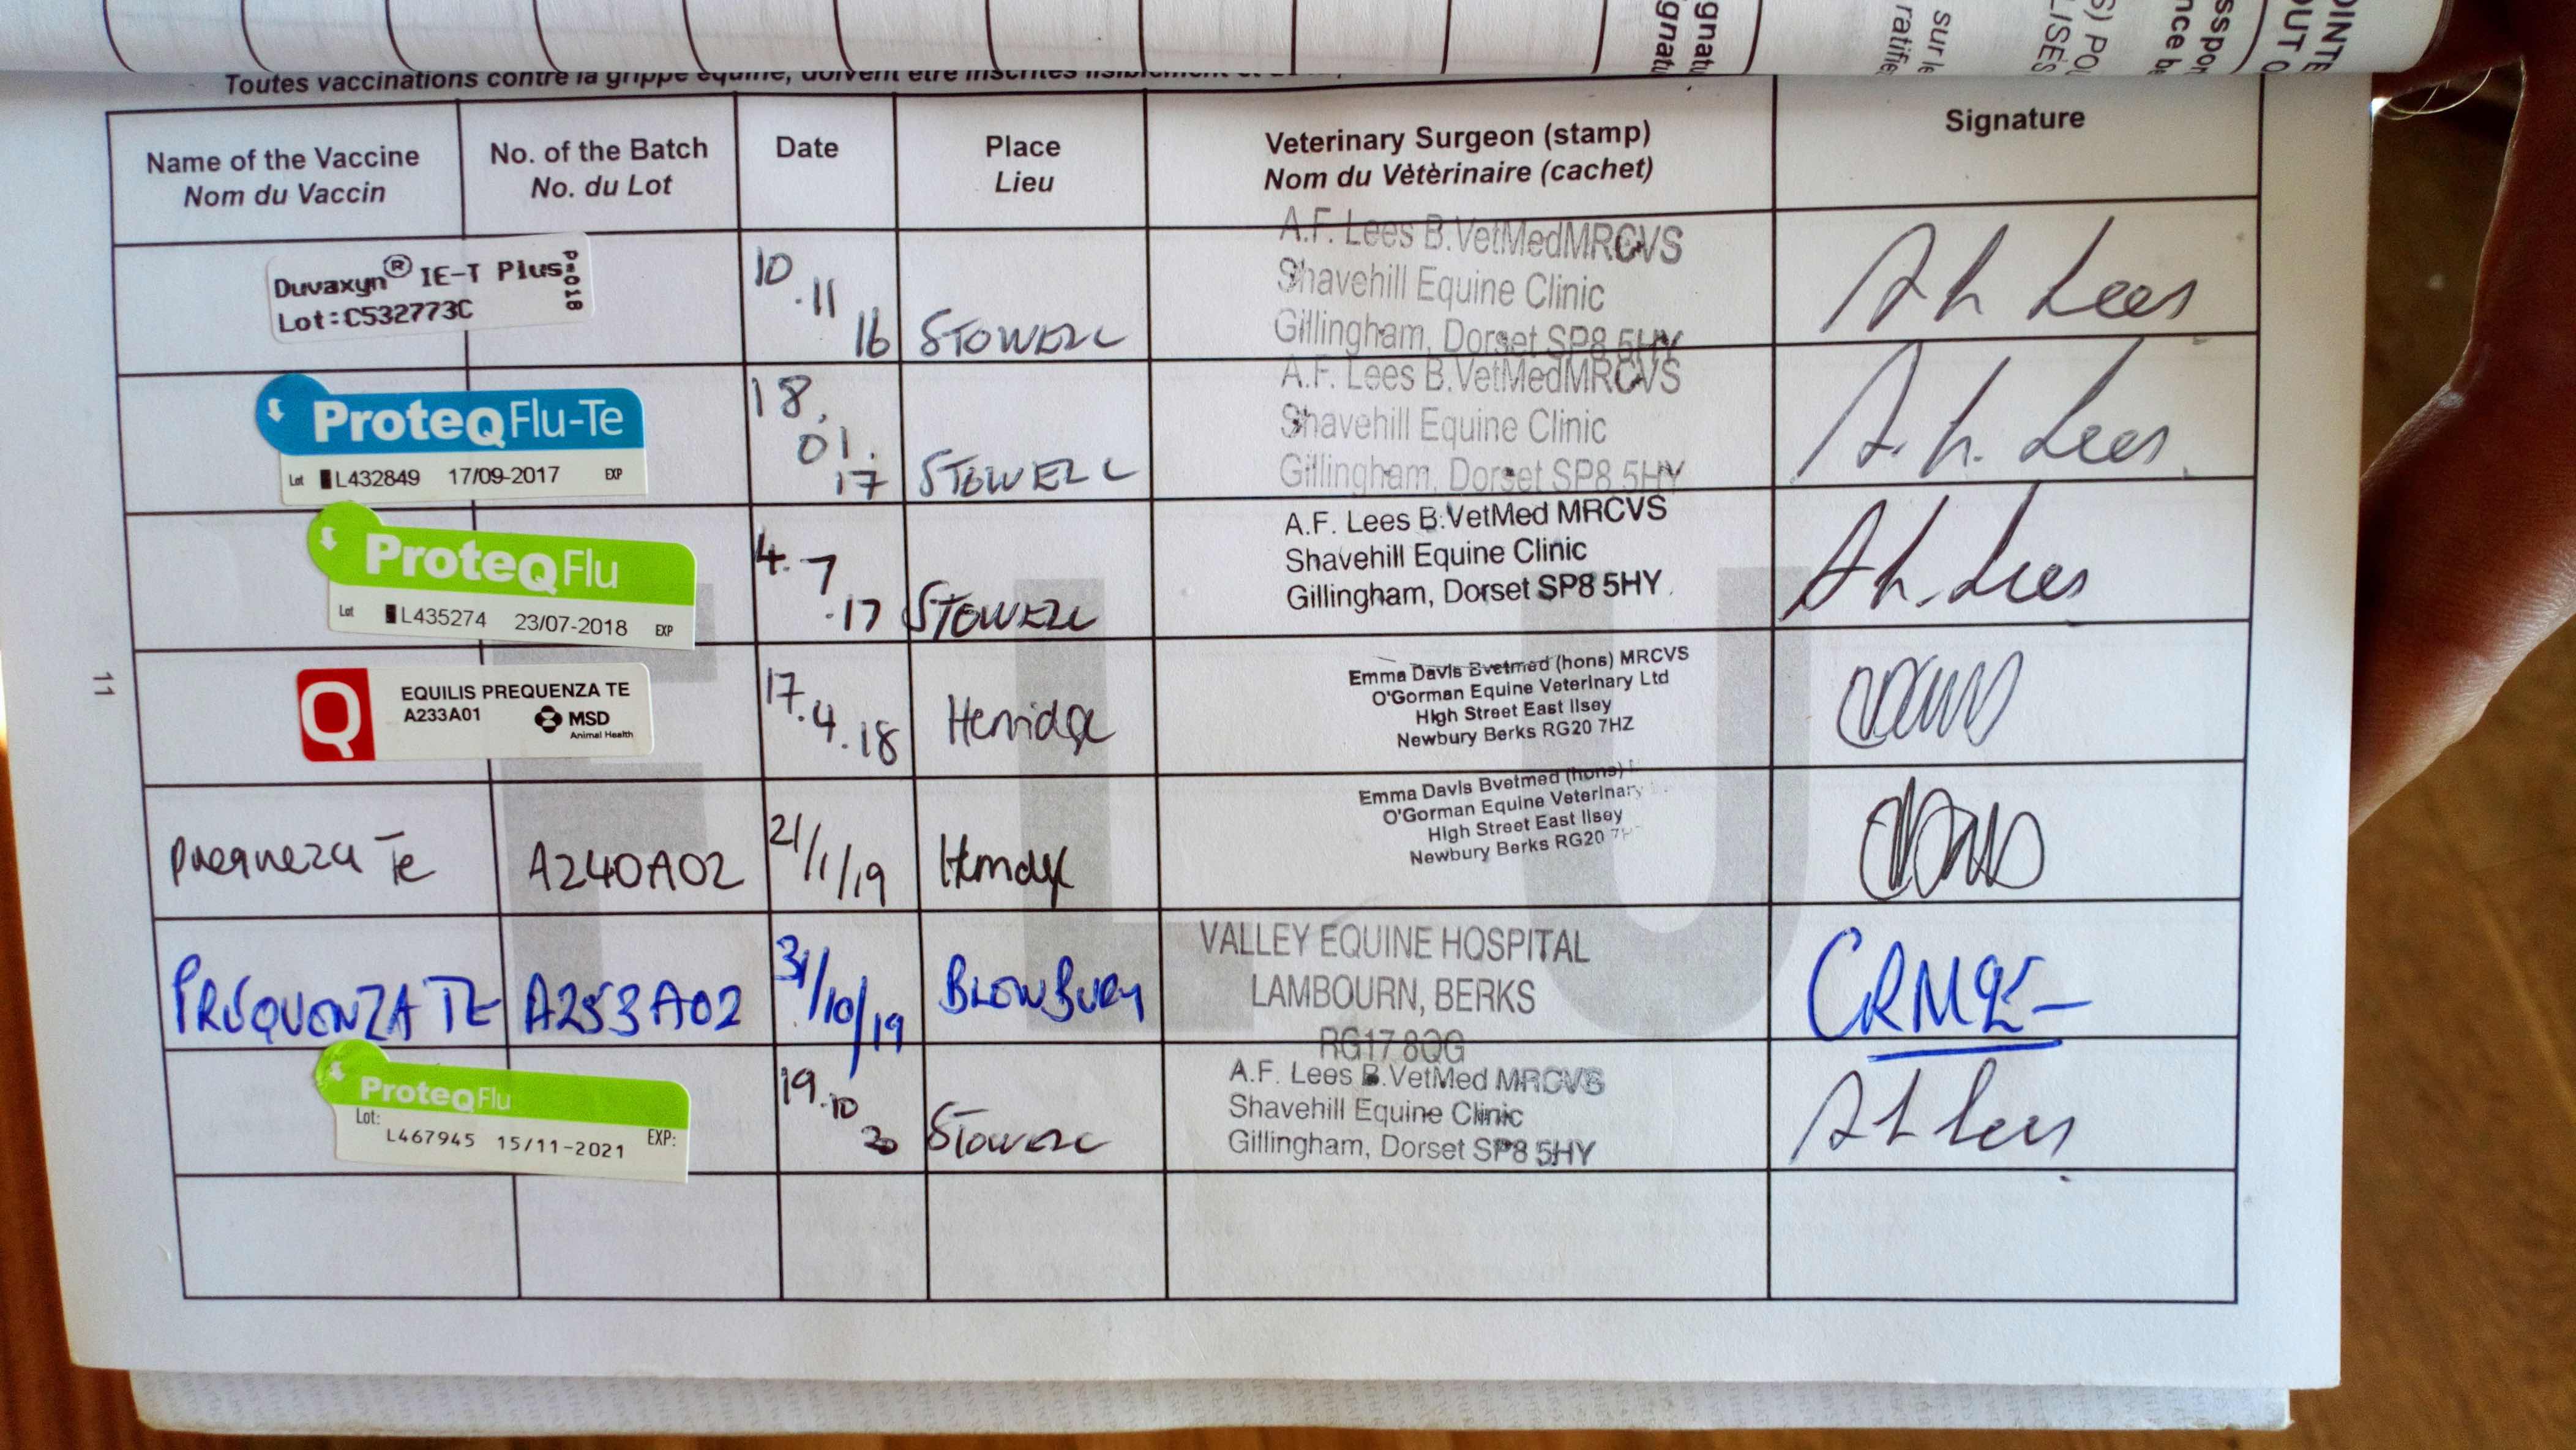 gnatu
gnatu
sur le
ratifie
S) POU
LISÉS
sspor
nce be
OINTE
OUT O
Toutes vaccinations contre la grippe équine, doivent être inscrites lisiblement et
Name of the Vaccine
Nom du Vaccin
No. of the Batch
No. du Lot
Date
Place
Lieu
Veterinary Surgeon (stamp)
Nom du Vètèrinaire (cachet)
Signature
Duvaxyn® IE-T Plus
Lot:C532773C
10.11 16
STOWELL
A.F. Lees B.VetMedMRCVS
Shavehill Equine Clinic
Gillingham, Dorset SP8 5HY
A h Lees
ProteQ Flu-Te
Lot L432849 17/09-2017 EXP
18.01.17
STOWELL
A.F. Lees B.VetMedMRCVS
Shavehill Equine Clinic
Gillingham, Dorset SP8 5HY
A. h. Lees
ProteQ Flu
Lot L435274 23/07-2018 EXP
4.7.17
STOWELL
A.F. Lees B.VetMed MRCVS
Shavehill Equine Clinic
Gillingham, Dorset SP8 5HY
A h. Lees
Q
EQUILIS PREQUENZA TE
A233A01
MSD
Animal Health
17.4.18
Emma Davis Bvetmed (hons) MRCVS
O'Gorman Equine Veterinary Ltd
High Street East Ilsey
Newbury Berks RG20 7HZ
Te
A240A02
21/1/19
Emma Davis Bvetmed (hons)
O'Gorman Equine Veterinary
High Street East Ilsey
Newbury Berks RG20
PREQUENZA TE
A253A02
31/10/19
BLEWBURY
VALLEY EQUINE HOSPITAL
LAMBOURN, BERKS
RG17 8QG
ProteQ Flu
Lot:
L467945 15/11-2021 EXP:
19.10 20
STOWELL
A.F. Lees B.VetMed MRCVS
Shavehill Equine Clinic
Gillingham, Dorset SP8 5HY
A h Lees
11
FLU